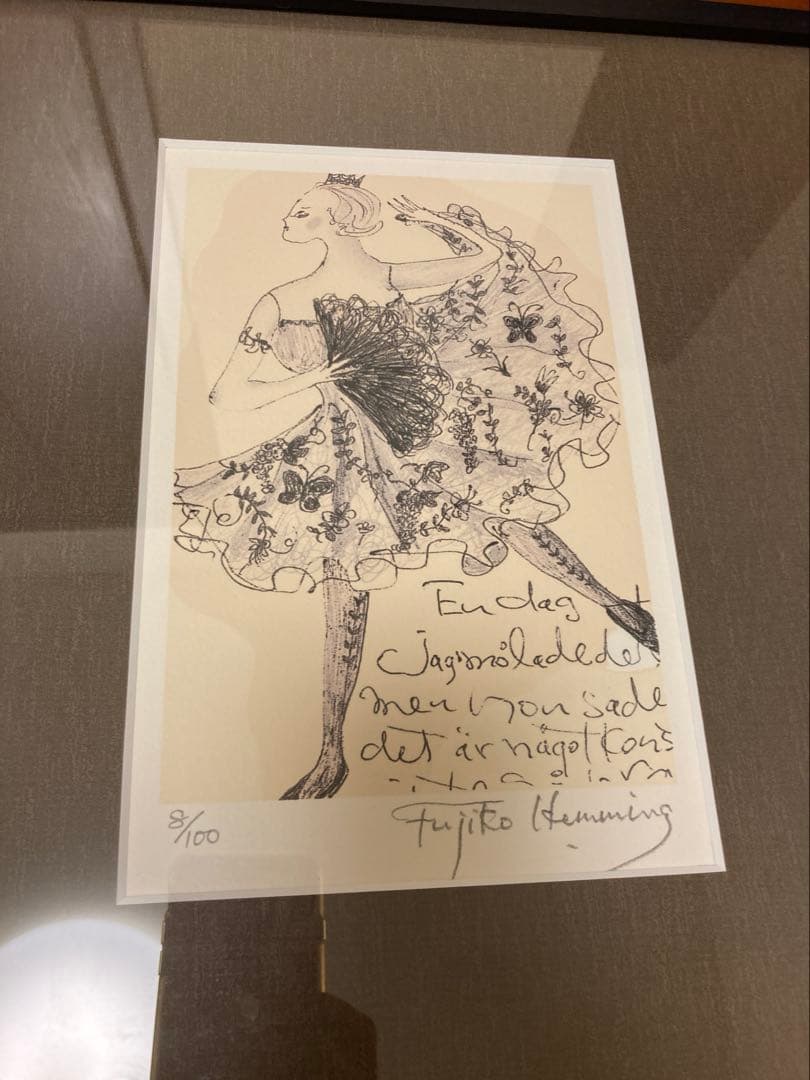 En dag
Jag målade det
men hon sade
det är något kons
8/100
Fujiko Hemming